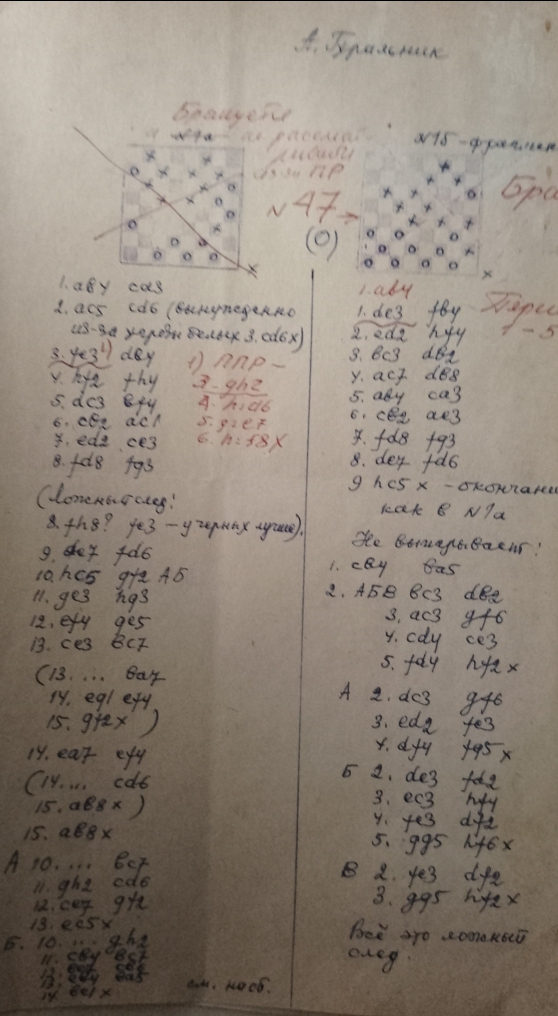 А. Гуральник
Бракуете
N 1а
ПР
N 47 →
(0)
N 15 - фрагмен
Бра
1. ab4 cd3
2. ac5 cd6 (вынужденно
из-за угрозы белых 3. cd6x)
3. fe3 1) db4
4. hf2 fh4
5. dc3 ef4
6. cb2 ac1
7. ed2 ce3
8. fd8 fg3
1) ППР -
3. gh2
4. h:d6
5. g:e7
6. h:f8x
(Ложный след:
8. fh8? fe3 - у черных лучше).
9. de7 fd6
10. hc5 gf2 АБ
11. ge3 hg3
12. ef4 ge5
13. ce3 bc7
(13. ... ba7
14. eg1 ef4
15. gf2x)
14. ea7 ef4
(14. ... cd6
15. ab8x)
15. ab8x
А 10. ... bc7
11. gh2 cd6
12. ce7 gf2
13. ec5x
Б. 10. ... gh2
11. cb4 bc7
см. наоб.
1. ab4
1. de3 fb4
2. ed2 hf4
3. bc3 db2
4. ac7 db8
5. ab4 ca3
6. cb2 ae3
7. fd8 fg3
8. de7 fd6
9 hc5x - окончани
как в N 1а
Не выигрывает:
1. cb4 ba5
2. АБВ bc3 db2
3. ac3 gf6
4. cd4 ce3
5. fd4 hf2x
А 2. dc3 gf6
3. ed2 fe3
4. df4 fg5x
Б 2. de3 fd2
3. ec3 hf4
4. fe3 df2
5. gg5 hf6x
В 2. fe3 df2
3. gg5 hf2x
Всё это ложный
след.